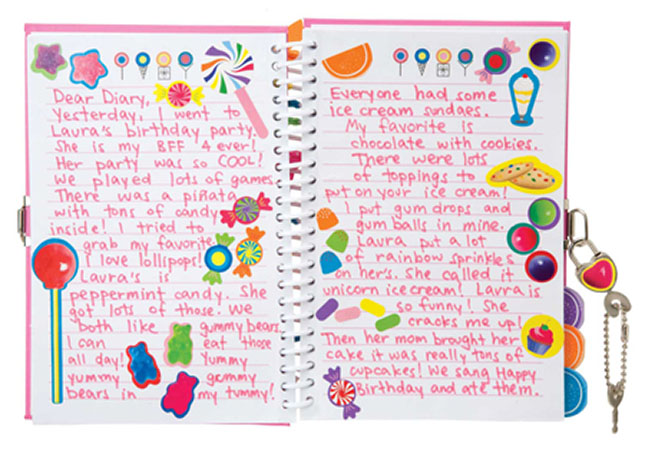 Dear Diary,
Yesterday, I went to
Laura's birthday party.
She is my BFF 4 ever!
Her party was so COOL!
We played lots of games.
There was a piñata
with tons of candy
inside! I tried to
grab my favorite
I love lollipops!
Laura's is
peppermint candy. She
got lots of those. We
both like gummy bears.
I can eat those
all day! Yummy
yummy gummy
bears in my tummy!
Everyone had some
ice cream sundaes.
My favorite is
chocolate with cookies.
There were lots
of toppings to
put on your ice cream!
I put gum drops and
gum balls in mine.
Laura put a lot
of rainbow sprinkles
on her's. She called it
unicorn ice cream! Laura is
so funny! She
cracks me up!
Then her mom brought her
cake it was really tons of
cupcakes! We sang Happy
Birthday and ate them.